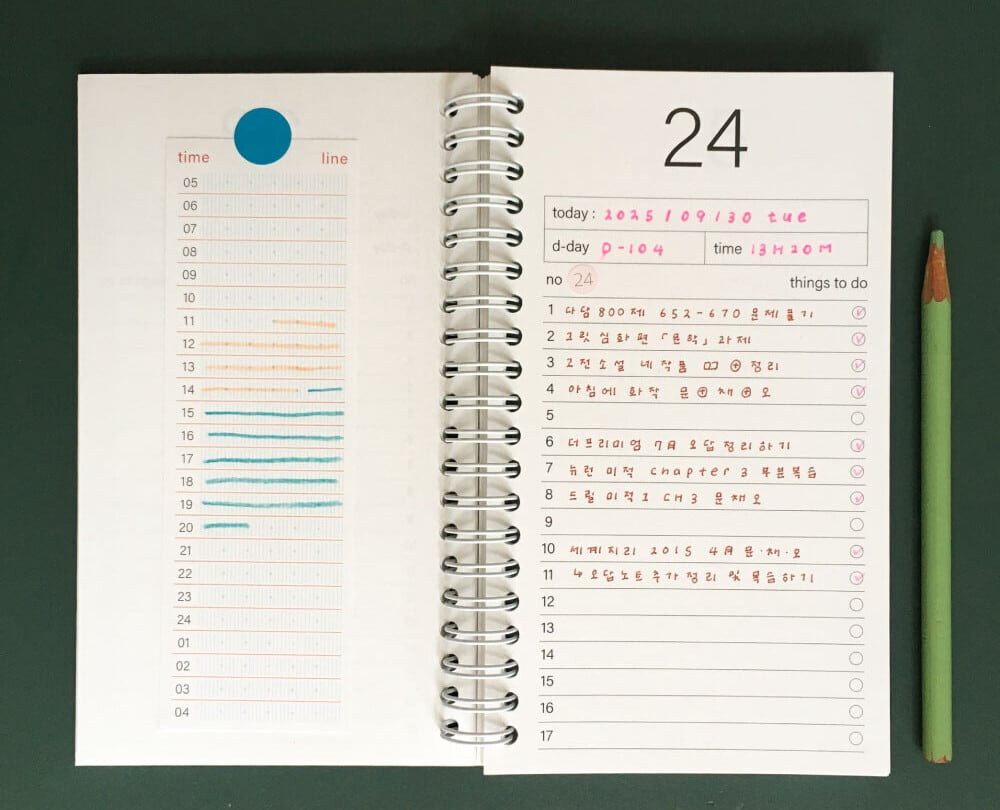 time line
05
06
07
08
09
10
11
12
13
14
15
16
17
18
19
20
21
22
23
24
01
02
03
04
24
today : 2025 / 09 / 30 tue
d-day D-104 time 13H 20M
no 24 things to do
1 다담 800제 652-670 문제 풀기
2 그릿 심화편 「문학」 과제
3 고전소설 네 작품 ⊕ 정리
4 아침에 화작 문 ⊕ 채 ⊕ 오
5
6 더프리미엄 7月 오답정리하기
7 뉴런 미적 Chapter 3 부분복습
8 드릴 미적 1 CH 3 문채오
9
10 세계지리 2015 4月 문·채·오
11 ↳ 오답노트 추가정리 및 복습하기
12
13
14
15
16
17